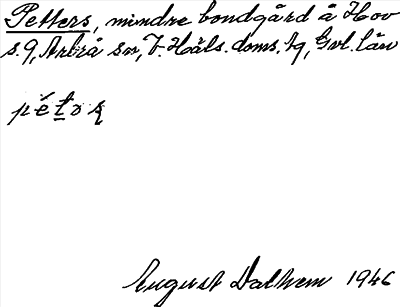 Petters, mindre bondgård å Hov
s. 9, Arbrå sn, V. Häls. doms. tg, Gvl. län
pètǝʂ
August Dalhem 1946